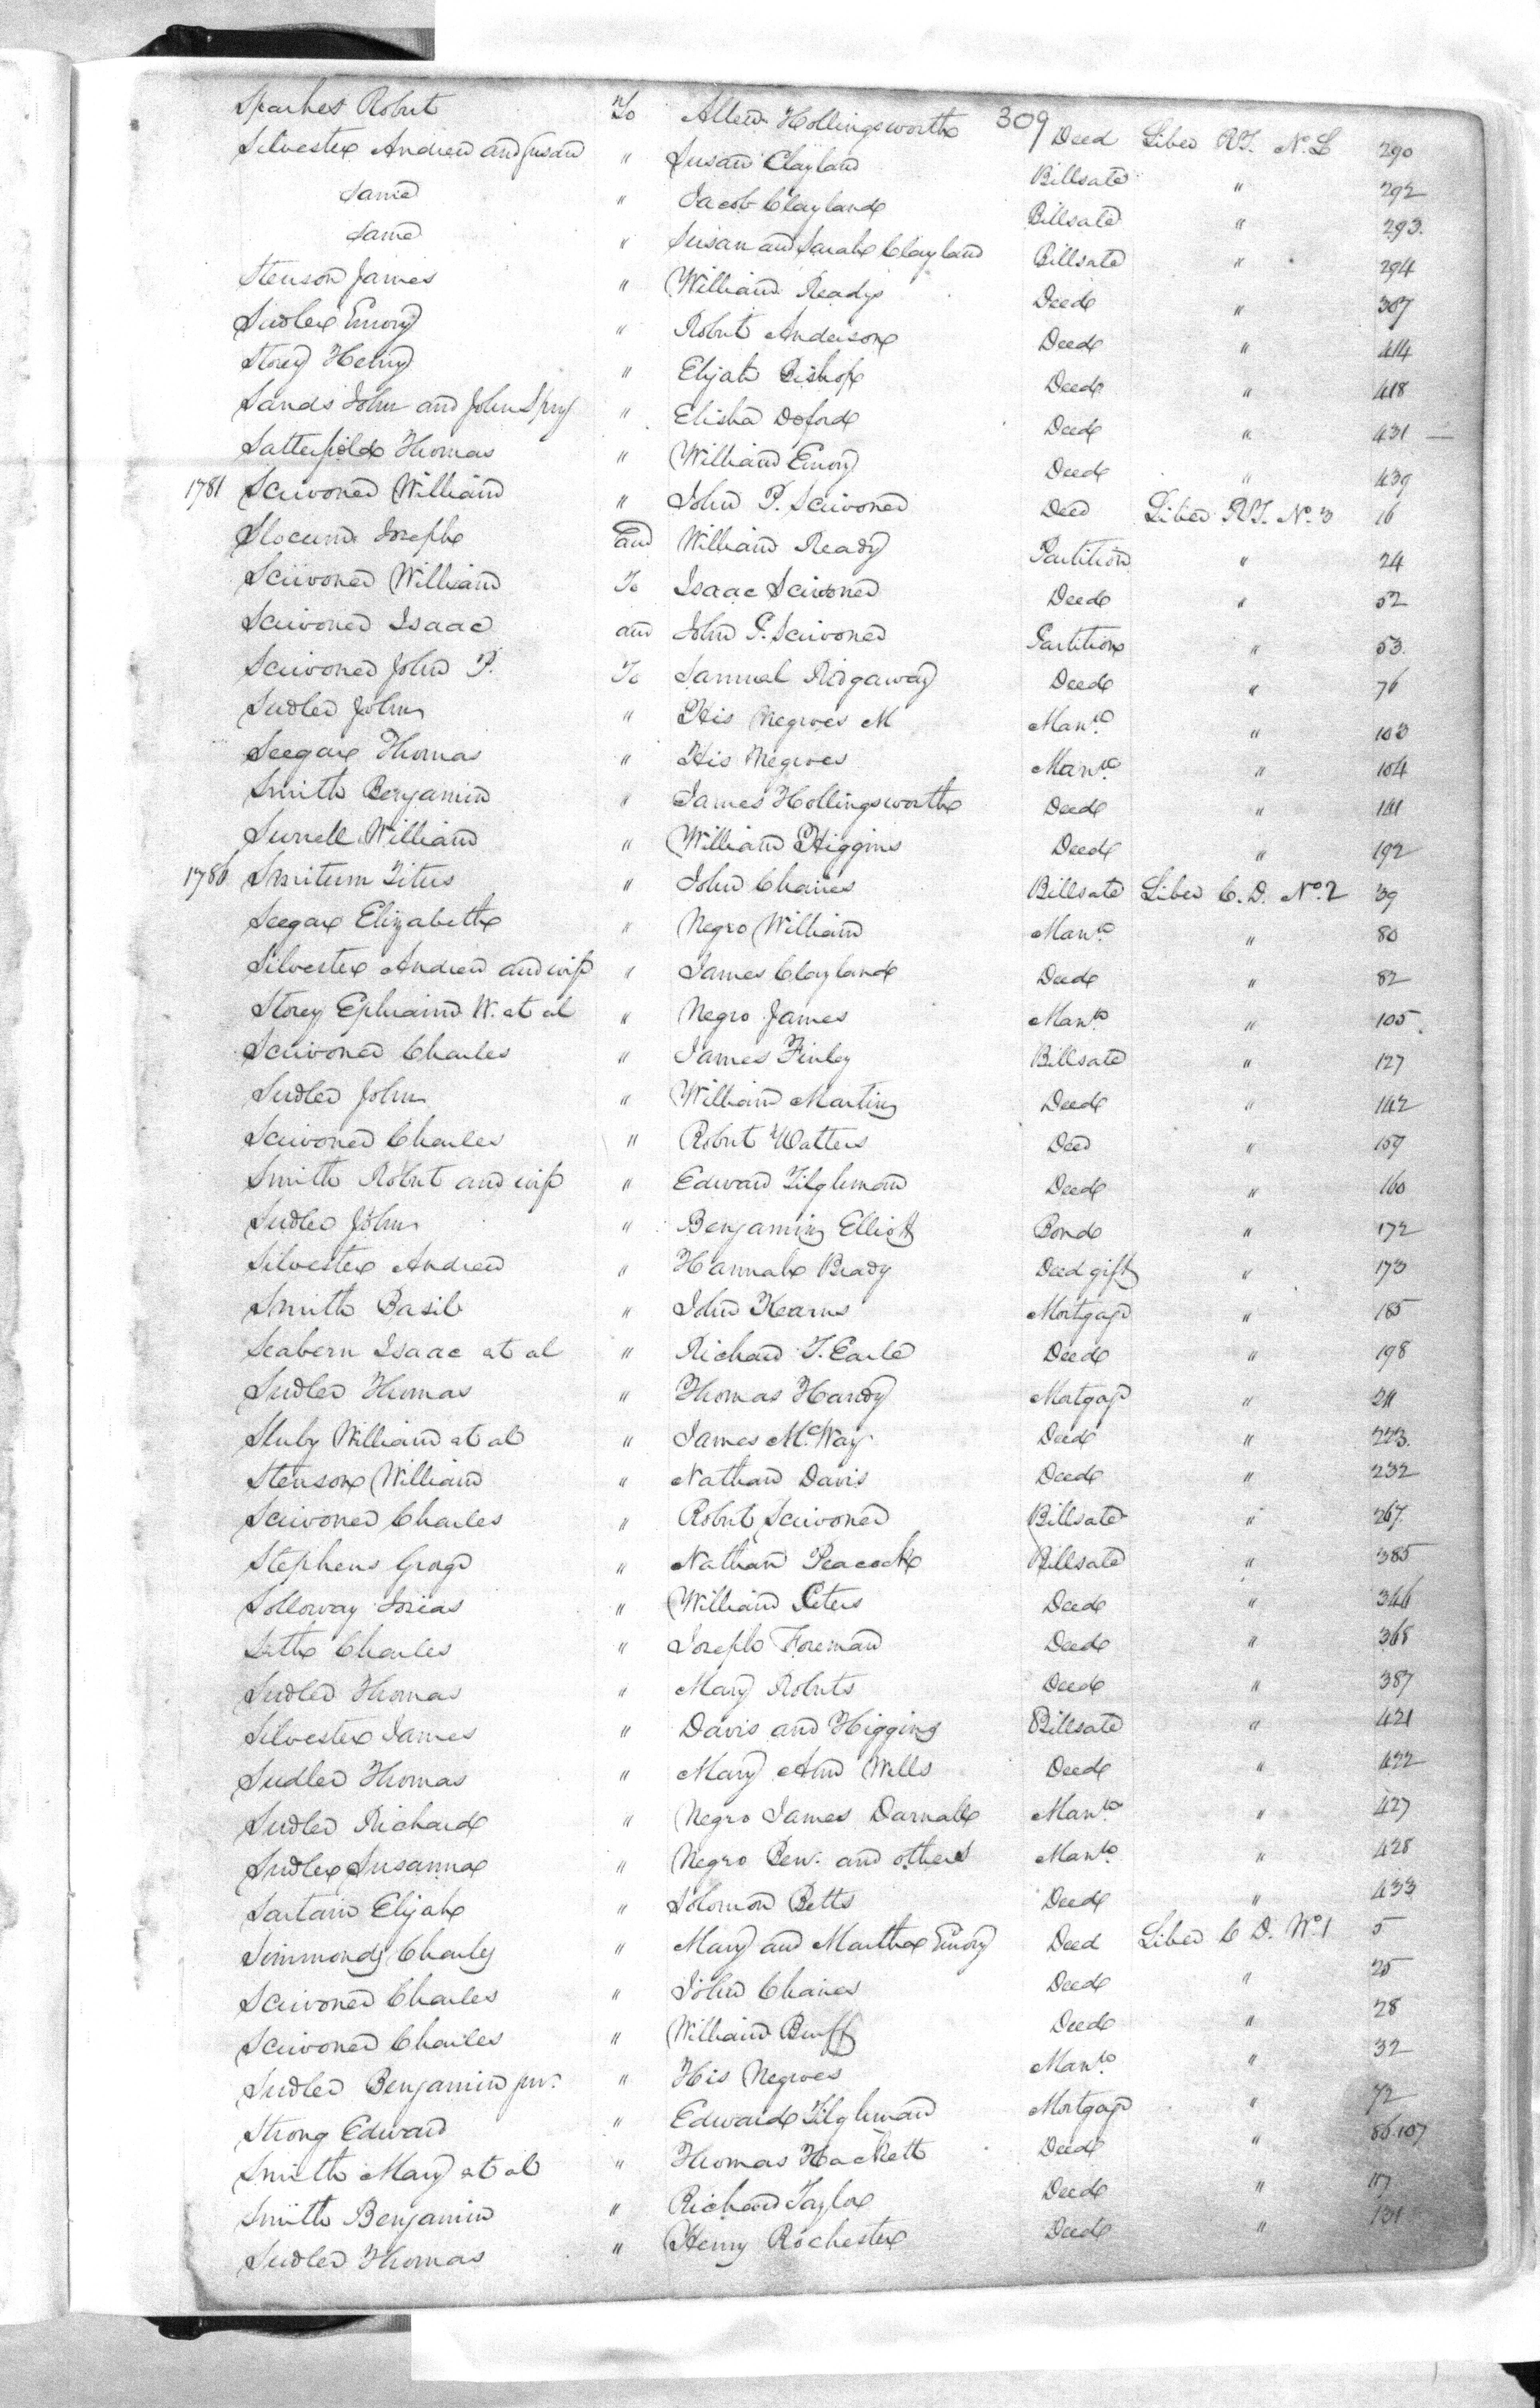 309
Sparkes Robert To Allen Hollingsworth Deed Liber RT. No. L 290
Silvester Andrew and Susan " Susan Clayland Billsale " 292
Same " Jacob Clayland Billsale " 293.
Same " Susan and Sarah Clayland Billsale " 294
Stenson James " William Ready Deed " 387
Sudler Emory " Robert Anderson Deed " 414
Storey Henry " Elijah Bishop Deed " 418
Sands John and John Spry " Elisha Deford Deed " 431
Satterfield Thomas " William Emory Deed " 439
1781 Scrivoner William " John P. Scrivoner Deed Liber RT. No. 3 16
Slocum Joseph and William Ready Partition " 24
Scrivoner William To Isaac Scrivoner Deed " 52
Scrivoner Isaac and John P. Scrivoner Partition " 53.
Scrivoner John P. To Samuel Ridgaway Deed " 76
Sudler John " His Negroes M Manro. " 103
Seegar Thomas " His Negroes Manro. " 104
Smith Benjamin " James Hollingsworth Deed " 141
Surrell William " William Higgins Deed " 192
1786 Smitum Titus " John Chaires Billsale Liber C. D. No. 2 39
Seegar Elizabeth " Negro William Manro. " 80
Silvester Andrew and wife " James Clayland Deed " 82
Storey Ephraim W. et al " Negro James Manro. " 105
Scrivoner Charles " James Finley Billsale " 127
Sudler John " William Martin Deed " 142
Scrivoner Charles " Robert Walters Deed " 159
Smith Robert and wife " Edward Tilghman Deed " 160
Sudler John " Benjamin Elliott Bond " 172
Silvester Andrew " Hannah Brady Deed gift " 173
Smith Basil " John Kearns Mortgage " 185
Seabern Isaac et al " Richard T. Earle Deed " 198
Sudler Thomas " Thomas Handy Mortgage " 211
Sluby William et al " James McWay Deed " 223.
Stenson William " Nathan Davis Deed " 232
Scrivoner Charles " Robert Scrivoner Billsale " 267.
Stephens George " Nathan Peacock Billsale " 385
Solloway Josias " William Peters Deed " 346
Seth Charles " Joseph Foreman Deed " 368
Sudler Thomas " Mary Roberts Deed " 387
Silvester James " Davis and Higgins Billsale " 421
Sudler Thomas " Mary Ann Wells Deed " 422
Sudler Richard " Negro James Darnall Manro. " 427
Sudler Susanna " Negro Ben. and others Manro. " 428
Sartain Elijah " Solomon Betts Deed " 433
Simmonds Charles " Mary and Martha Emory Deed Liber C D. No. 1 5
Scrivoner Charles " John Chaires Deed " 25
Scrivoner Charles " William Bruff Deed " 28
Sudler Benjamin junr. " His Negroes Manro. " 32
Strong Edward " Edward Tilghman Mortgage " 72
Smith Mary et al " Thomas Hackett Deed " 86.107
Smith Benjamin " Richard Taylor Deed " 117
Sudler Thomas " Henry Rochester Deed " 131